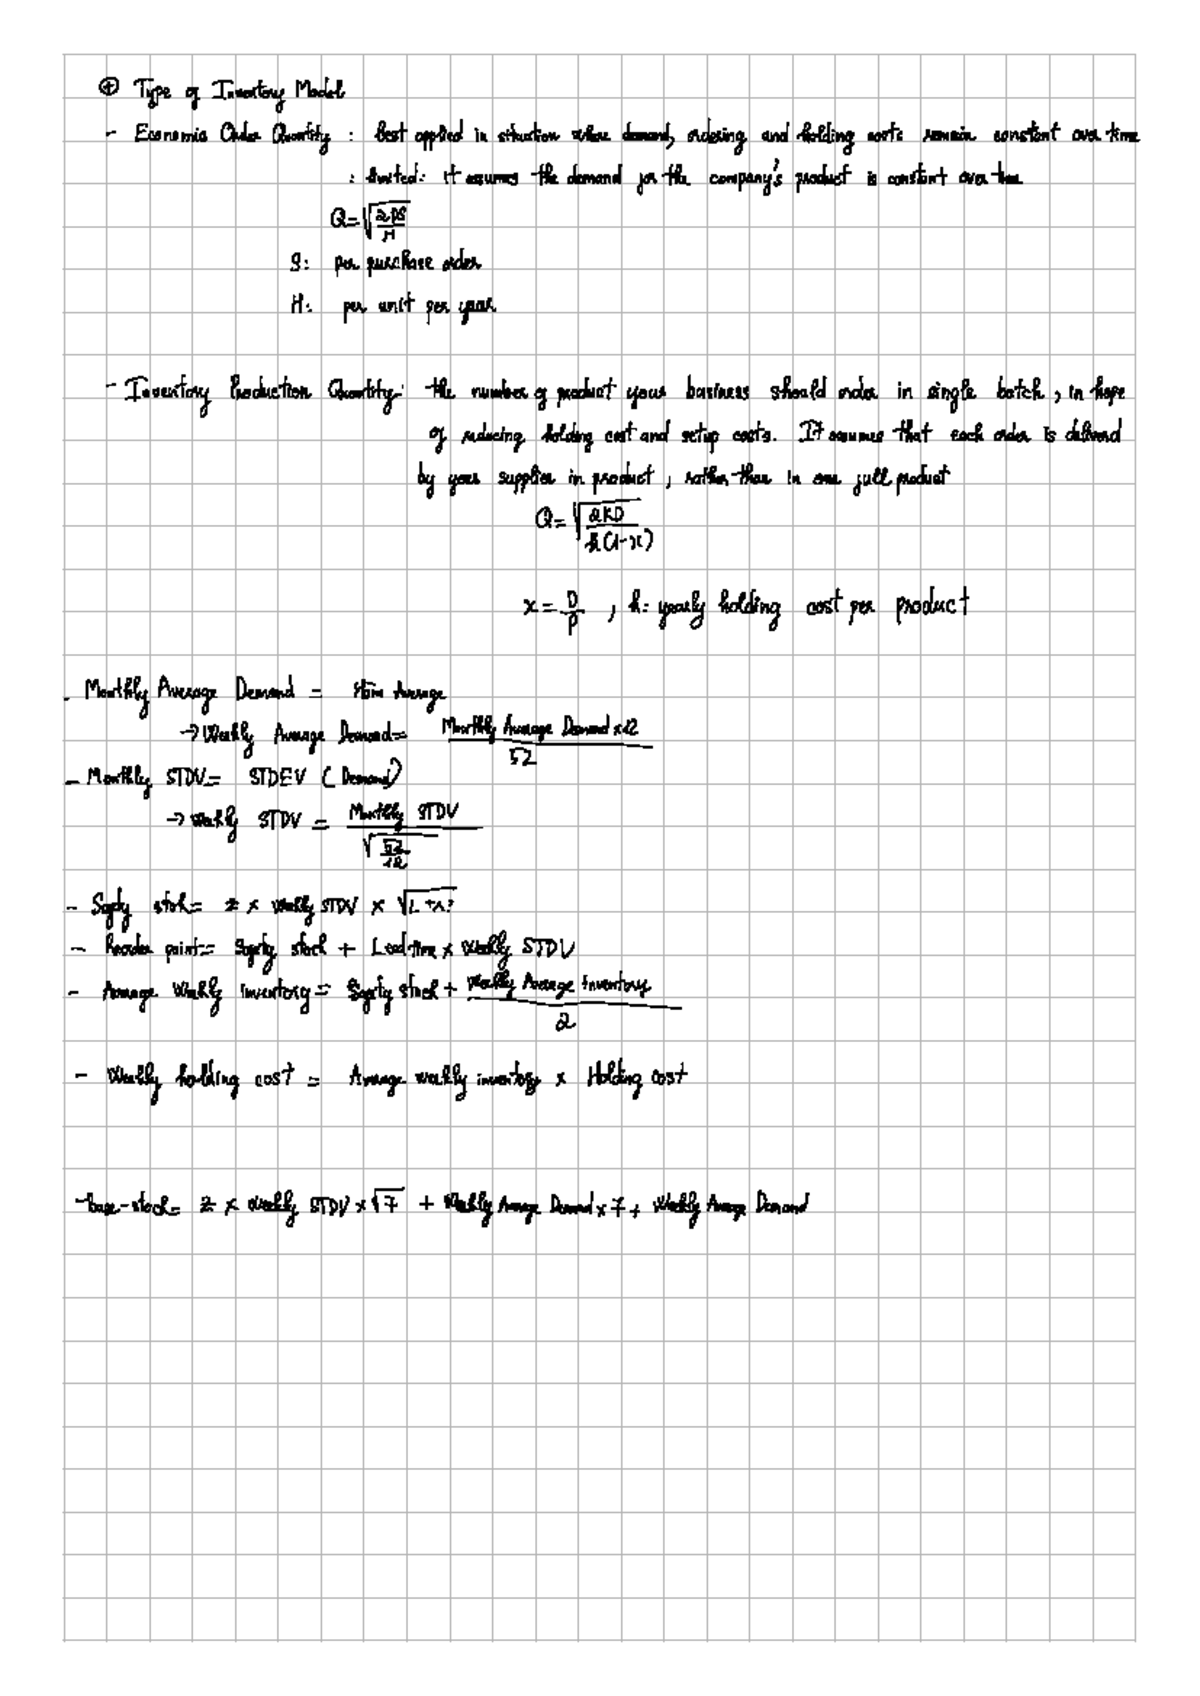 ⊕ Type of Inventory Model
- Economic Order Quantity : Best applied in situation where demand, ordering and holding costs remain constant over time
: limited: it assumes the demand for the company's product is constant over time
Q = √(2DS/H)
S: per purchase order
H: per unit per year
- Inventory Production Quantity: the number of product your business should order in single batch, in hope
of reducing holding cost and setup costs. It assumes that each order is delivered
by your supplier in product, rather than in one full product
Q = √(2KD/h(1-x))
x = D/P , h: yearly holding cost per product
- Monthly Average Demand = Average
→ Weekly Average Demand = Monthly Average Demand x12 / 52
- Monthly STDV = STDEV (Demand)
→ Weekly STDV = Monthly STDV / √(52/12)
- Safety stock = z × Weekly STDV ×
- Reorder point = Safety stock + Lead time × Weekly STDV
- Average Weekly inventory = Safety stock + Weekly Average Inventory / 2
- Weekly holding cost = Average weekly inventory × Holding cost
- base-stock = z × weekly STDV × √7 + Weekly Average Demand × 7 + Weekly Average Demand